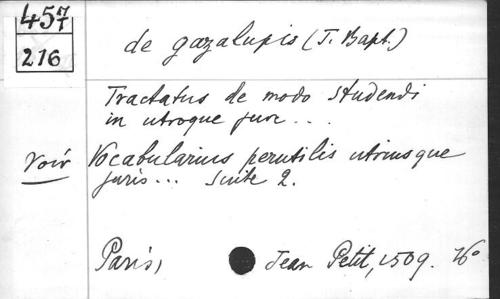 457
216
de gazalupis (J. Bapt.)
Tractatus de modo studendi
in utroque jure ...
Voir Vocabularius perutilis utriusque
juris ... suite 2.
Paris, Jean Petit, 1509. 16°